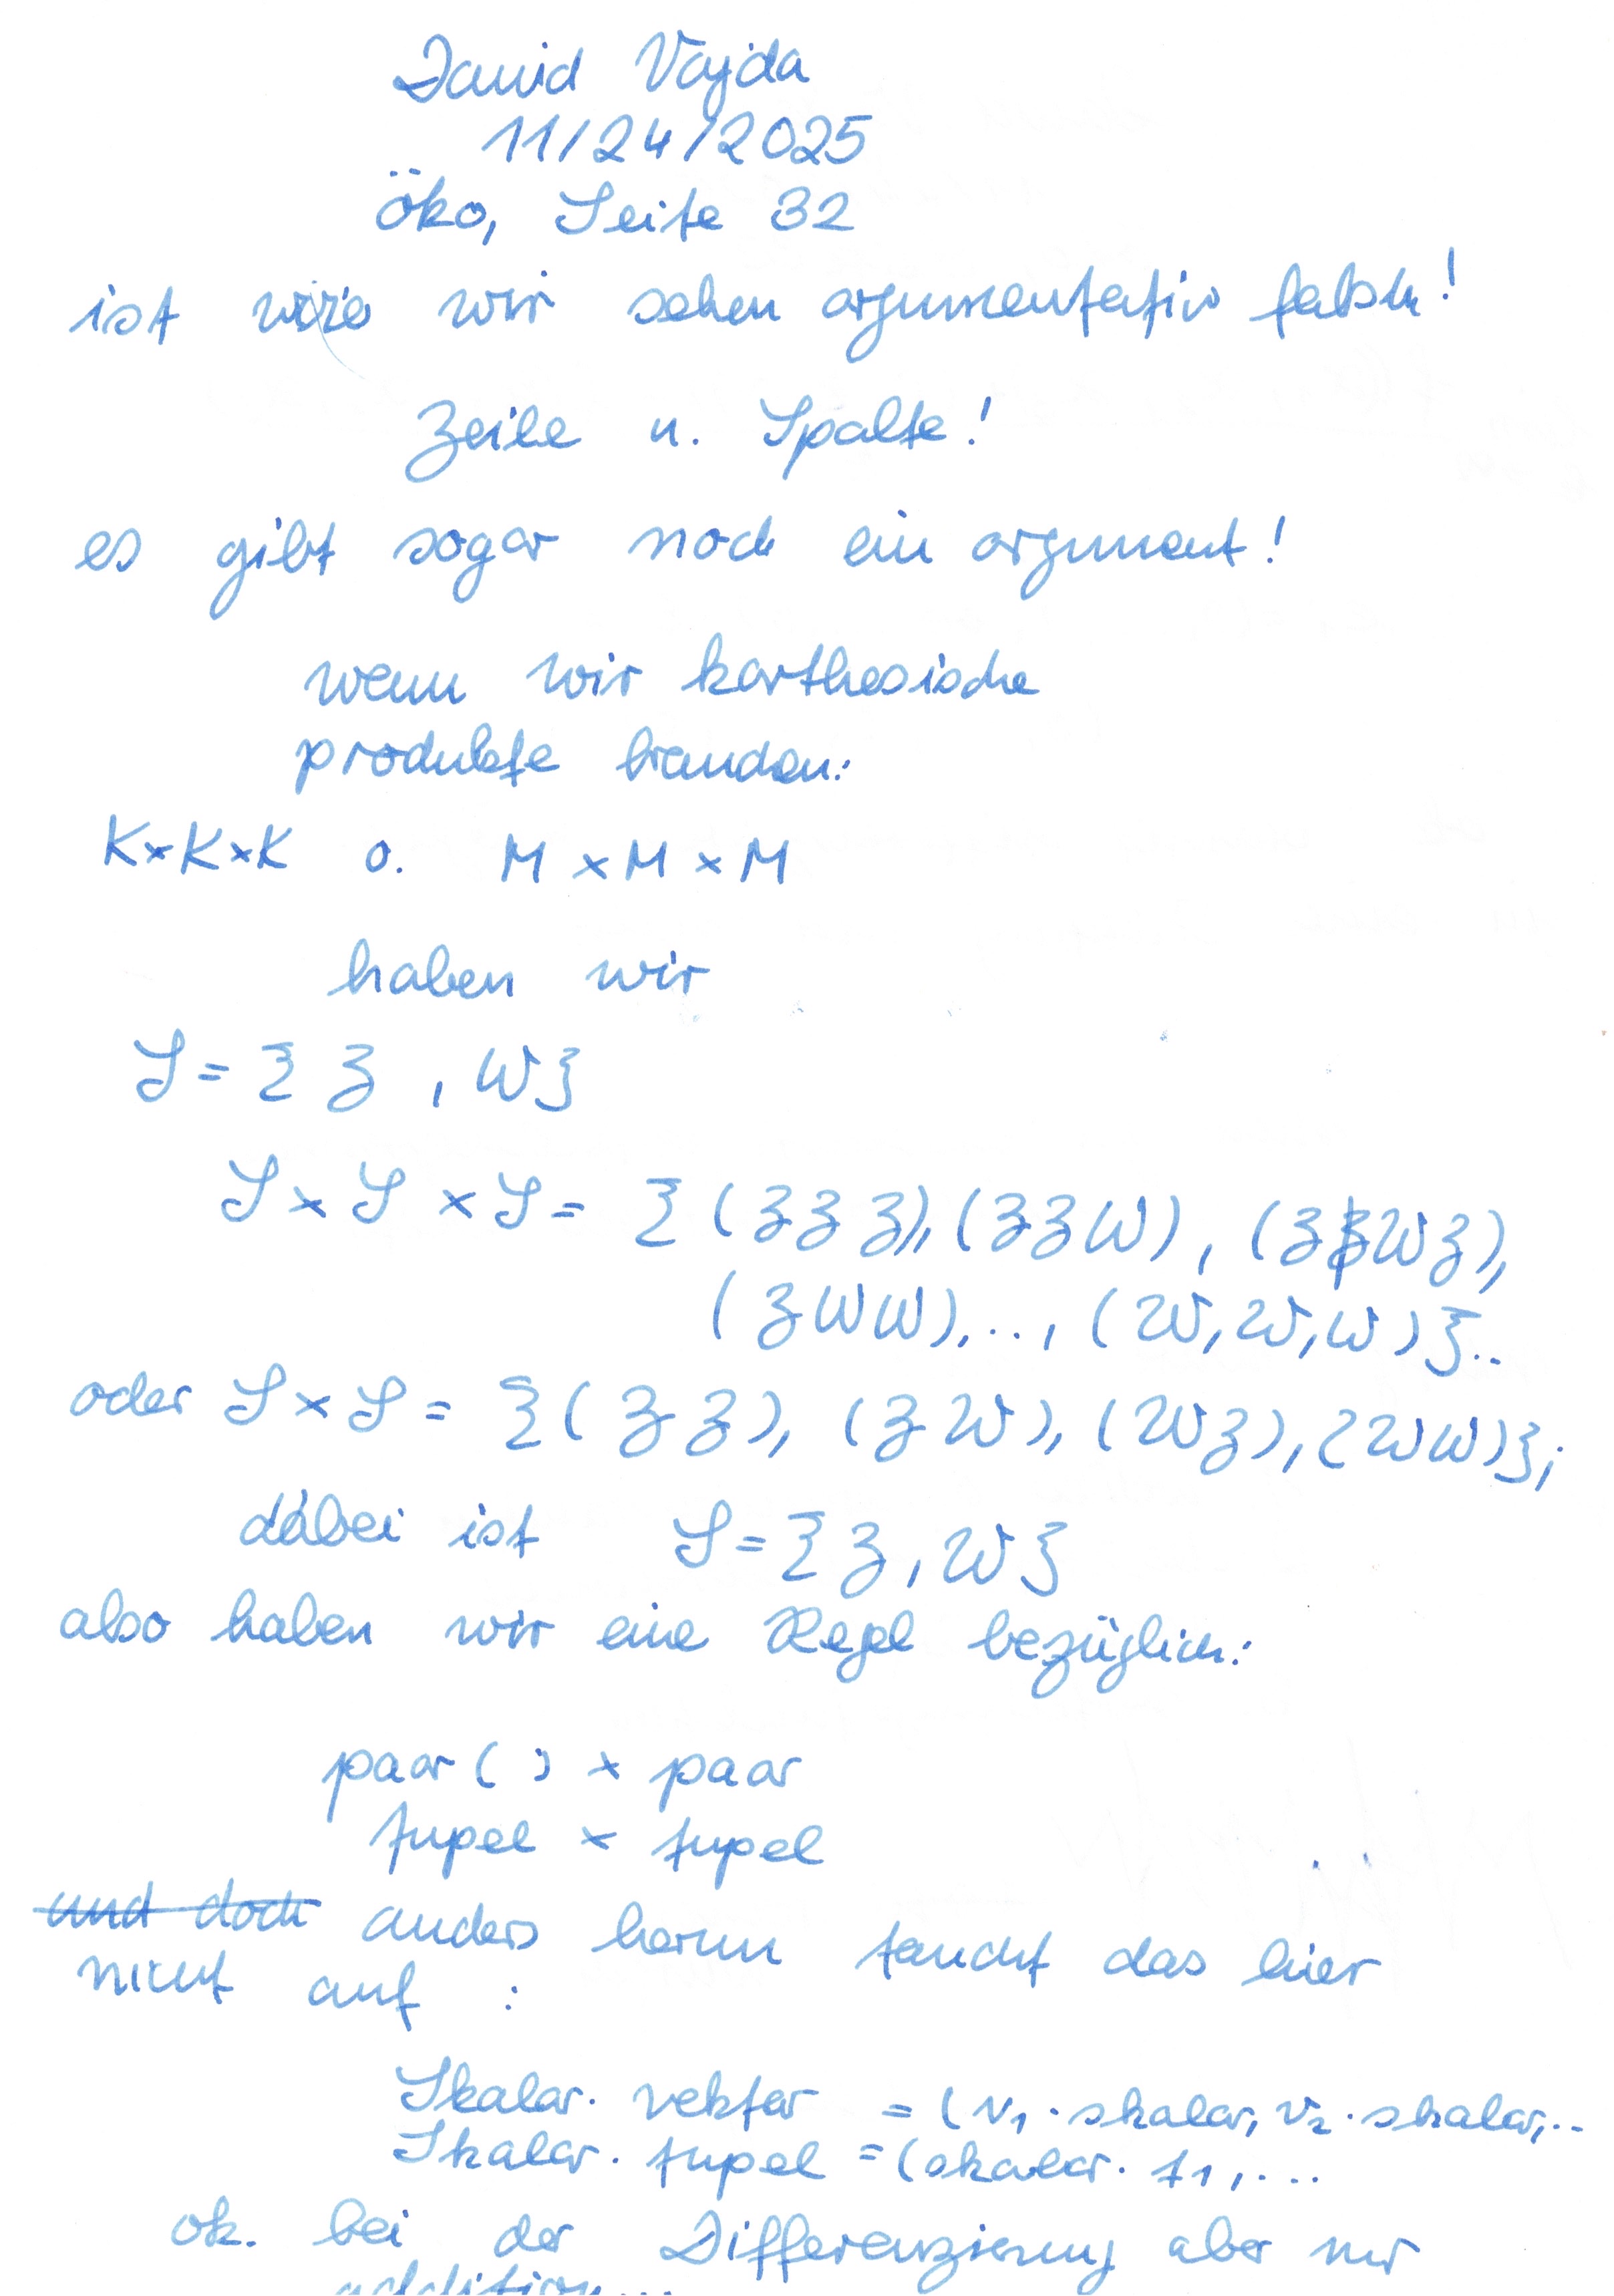 David Vajda
11/24/2025
Öko, Seite 32
ist wie wir sehen argumentativ falsch!
Zeile u. Spalte!
es gibt sogar noch ein argument!
wenn wir karthesische
produkte brauchen:
K×K×K o. M×M×M
haben wir
S = { Z , W}
S × S × S = { (Z Z Z), (Z Z W), (Z W Z),
(Z W W), ..., (W, W, W) }..
oder S × S = { (Z Z), (Z W), (W Z), (W W)};
dabei ist S = { Z, W}
also haben wir eine Regel bezüglich:
paar ( ) × paar
tupel × tupel
und doch anders herum taucht das hier
nicht auf :
Skalar · vektor = (v₁ · skalar, v₂ · skalar, ..
Skalar · tupel = (skalar · t₁, ...
ok. bei der Differenzierung aber nur
addition...